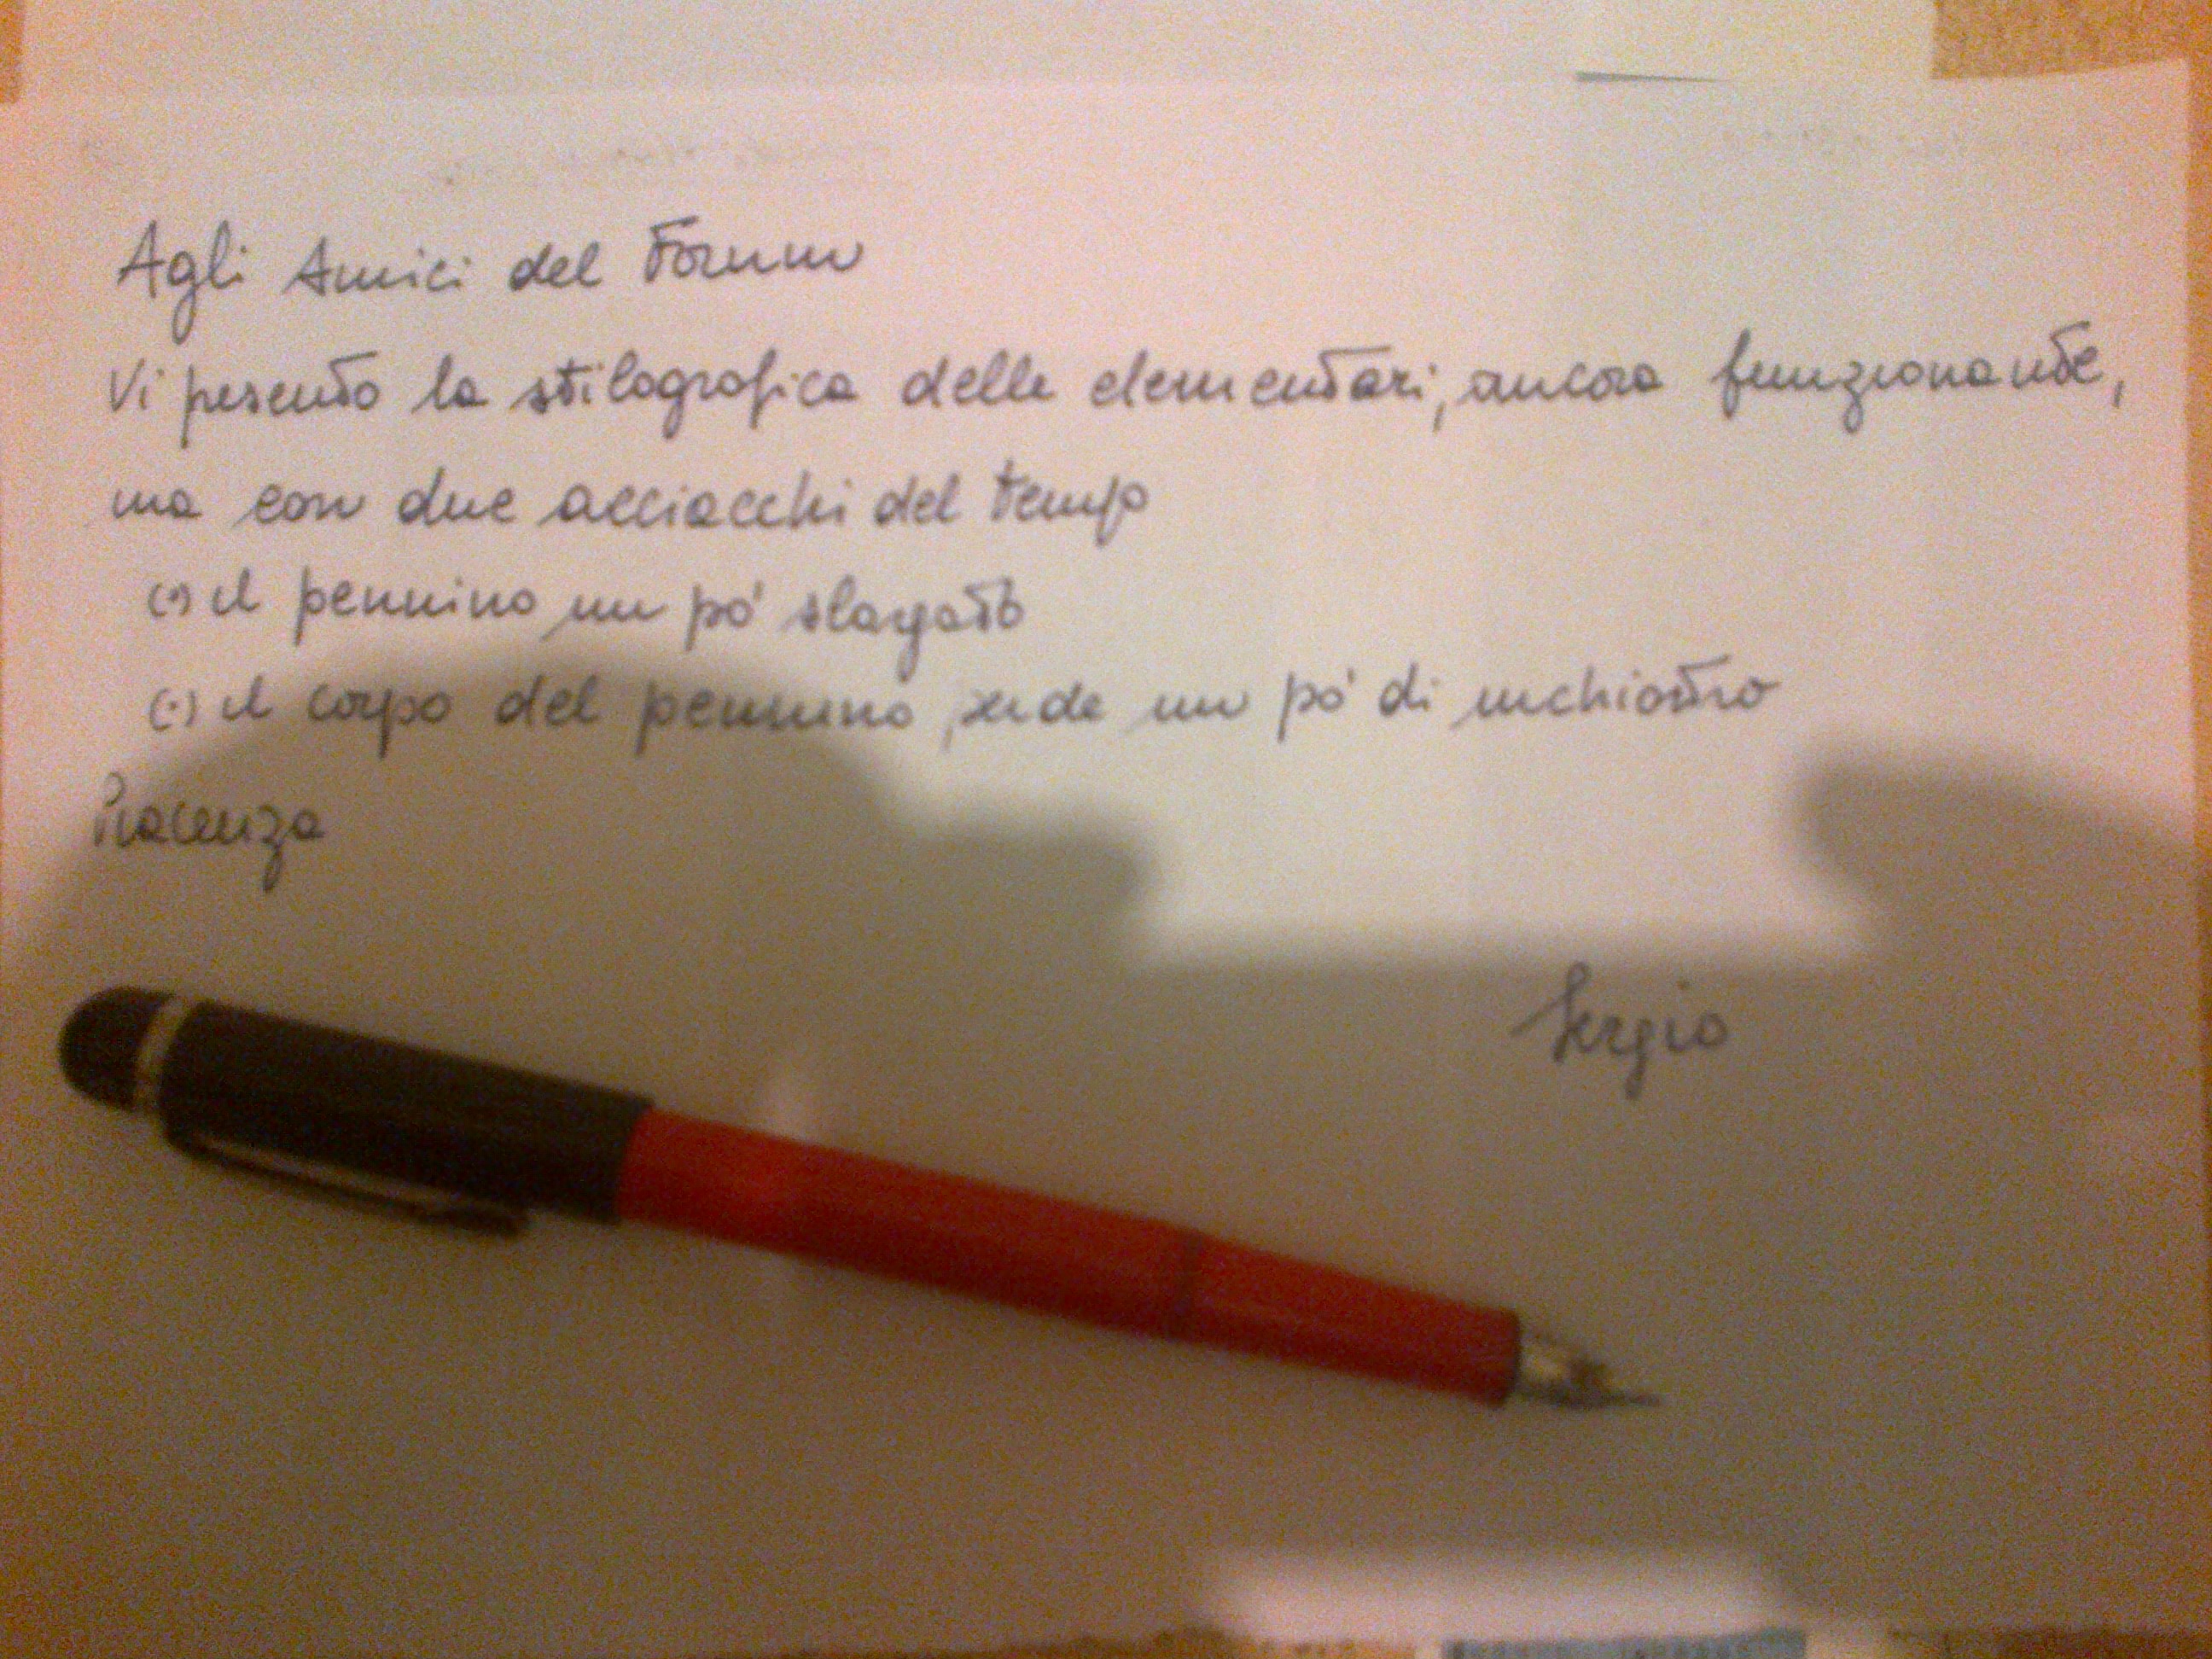 Agli Amici del Forum
Vi presento la stilografica delle elementari, ancora funzionante,
ma con due acciacchi del tempo
(•) il pennino un pó slargato
(•) il corpo del pennino, suda un pó di inchiostro
Piacenza
Sergio